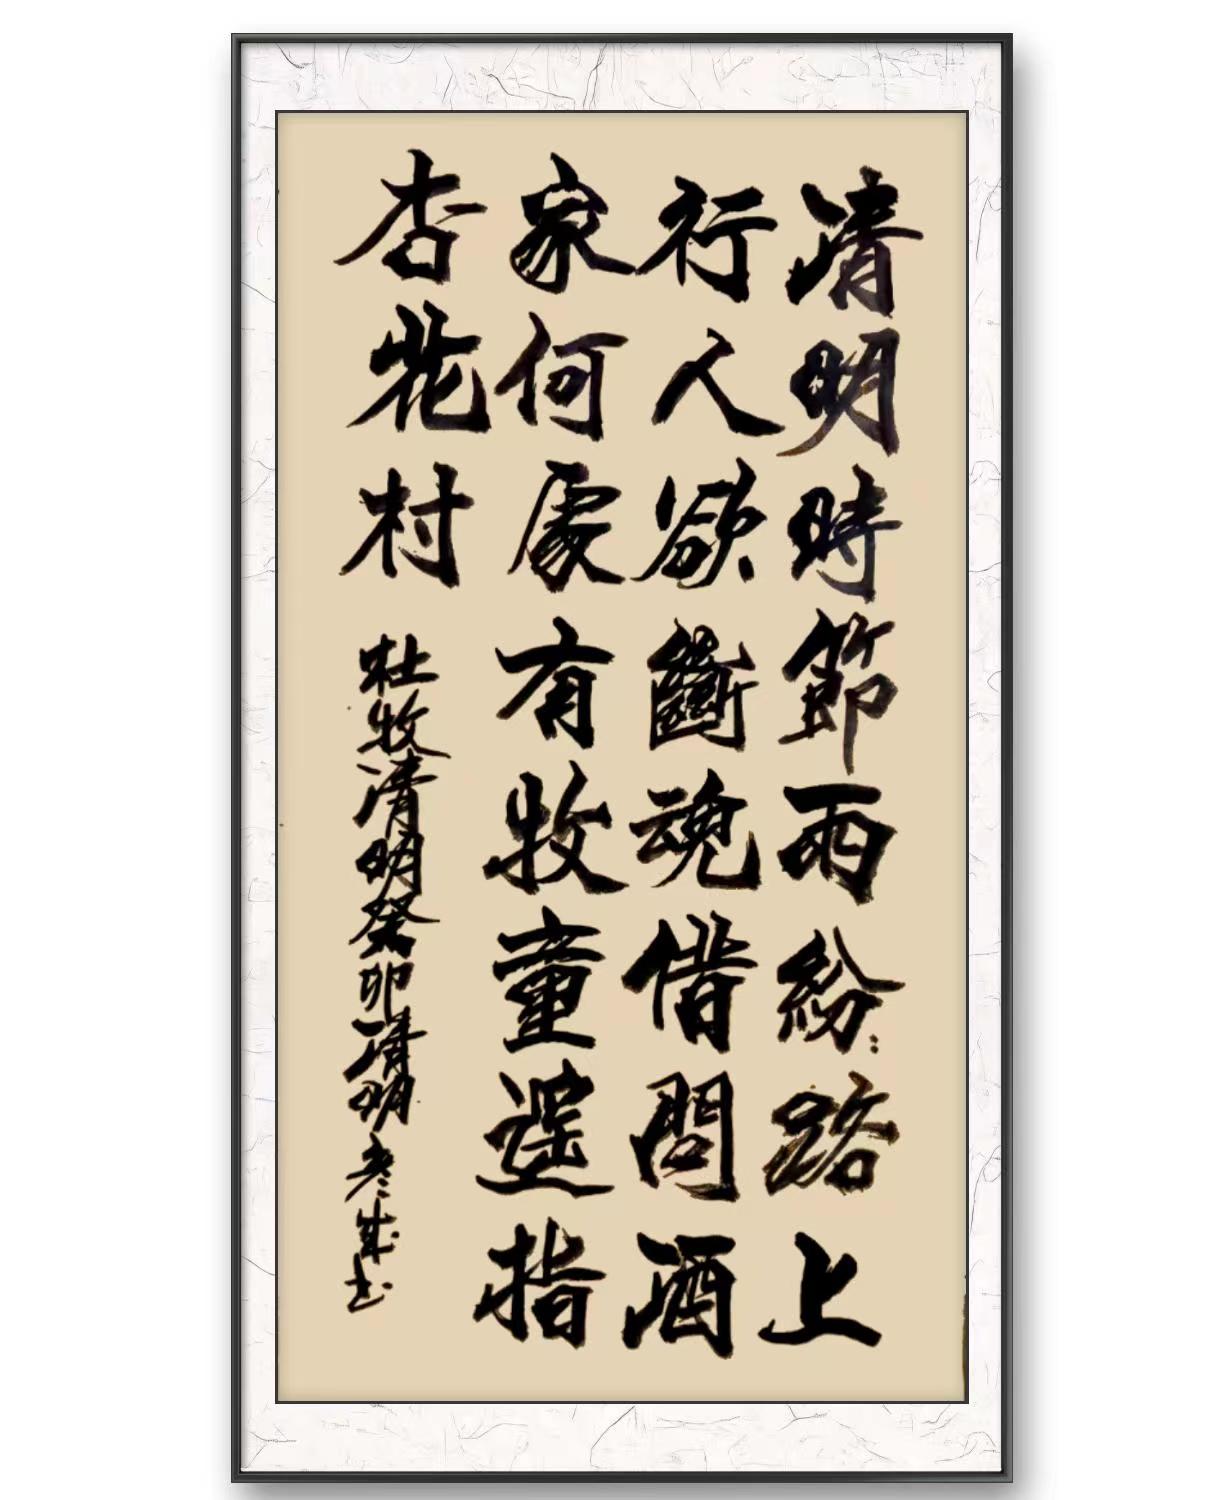 清明時節雨紛:路上
行人欲斷魂借問酒
家何處有牧童遥指
杏花村
杜牧清明癸卯清明彦成书